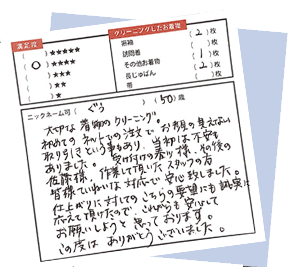 満足度
クリーニングしたお着物
( ) ★★★★★
( ○ ) ★★★★
( ) ★★★
( ) ★★
( ) ★
( 2 ) 枚
訪問着 ( 1 ) 枚
その他お着物 ( 2 ) 枚
長じゅばん ( ) 枚
帯 ( ) 枚
ニックネーム可 ( ぐう ) ( 50 ) 歳
大切な着物のクリーニング。
初めてのネットでの注文で、お顔の見えない
取り引きという事もあり、当初は不安も
ありました。受け付けの 様、その後の
佐藤様、作業して頂いたスタッフの方
皆様ていねいな対応で安心致しました。
仕上がりに対してのこちらの要望にも誠実に
応えて頂けたので、これからも安心して
お願いしようと思っております。
この度はありがとうございました。